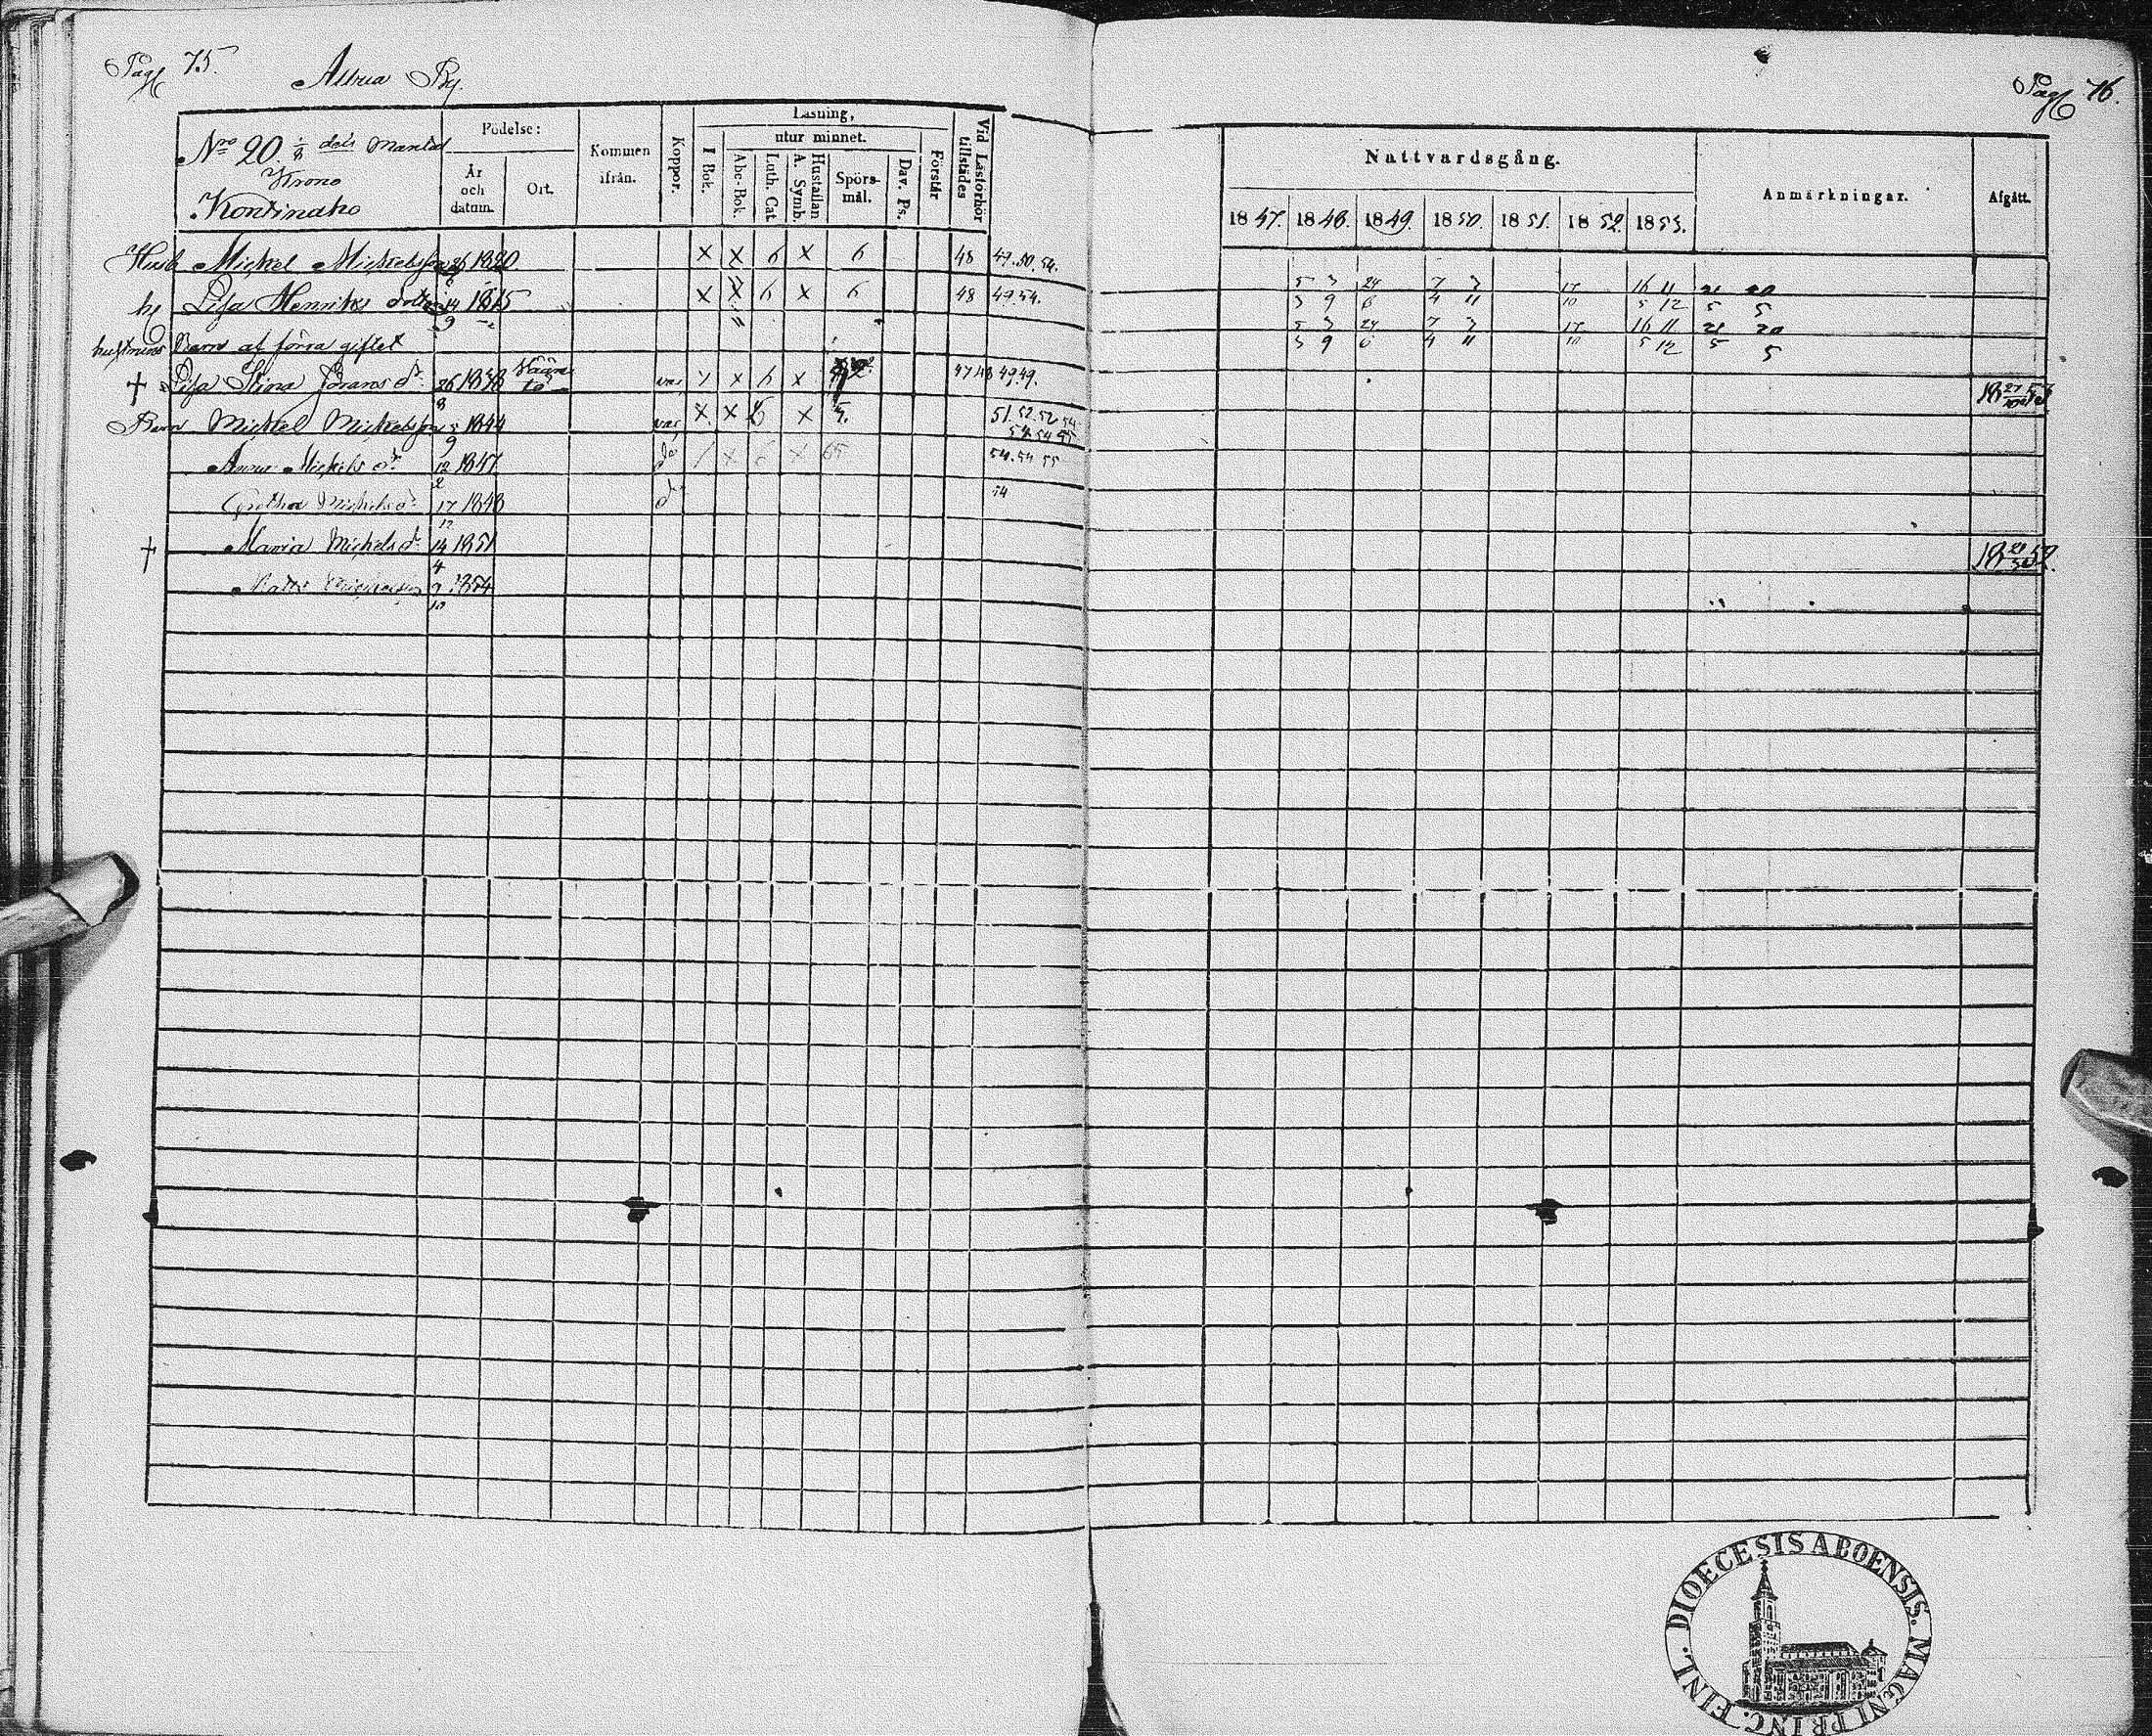 Pag 75.
Attua By.
Nro 20. 1/8 dels Mantal
Krono
Kontinaho
Födelse:
År och datum.
Ort.
Kommen ifrån.
Koppor.
Läsning,
utur minnet.
I Bok.
Abc-Bok.
Luth. Cat.
Hustaflan A. Symb.
Spörsmål.
Dav. Ps.
Förstår
Vid Läsförhör tillstädes
Husb Mickel Mickelsson 26 1820. X X 6 X 6 48 49.50.54.
h Lisa Henriks dotter 14/9 1815 X X 6 X 6 48 49 54.
hustruns Barn af förra giftet
† Lisa Stina Jörans dr. 26/8 1838 vac X 6 X 47 48 49.49.
Barn Mickel Mickelsson 5/9 1844 vac X X 6 X 5. 51. 52 52 54 54 54 55
Anna Mickels dr. 12/2 1847 do X 6 X 54. 54 55
Gretha Mickels dr 17/12 1848 do 54
† Maria Mickels dr 14/4 1851
Matts Mickelsson 9/10 1854
Pag 76.
Nattvardsgång.
Anmärkningar.
Afgått.
1847. 1848. 1849. 1850. 1851. 1852. 1853.
5 3 24 7 3 17 16 11 21 20
3 9 6 4 11 10 5 12 5 5
5 3 24 7 3 17 16 11 21 20
3 9 6 4 11 10 5 12 5 5
DIOECESIS ABOENSIS. MAGNI PRINC. FINL.